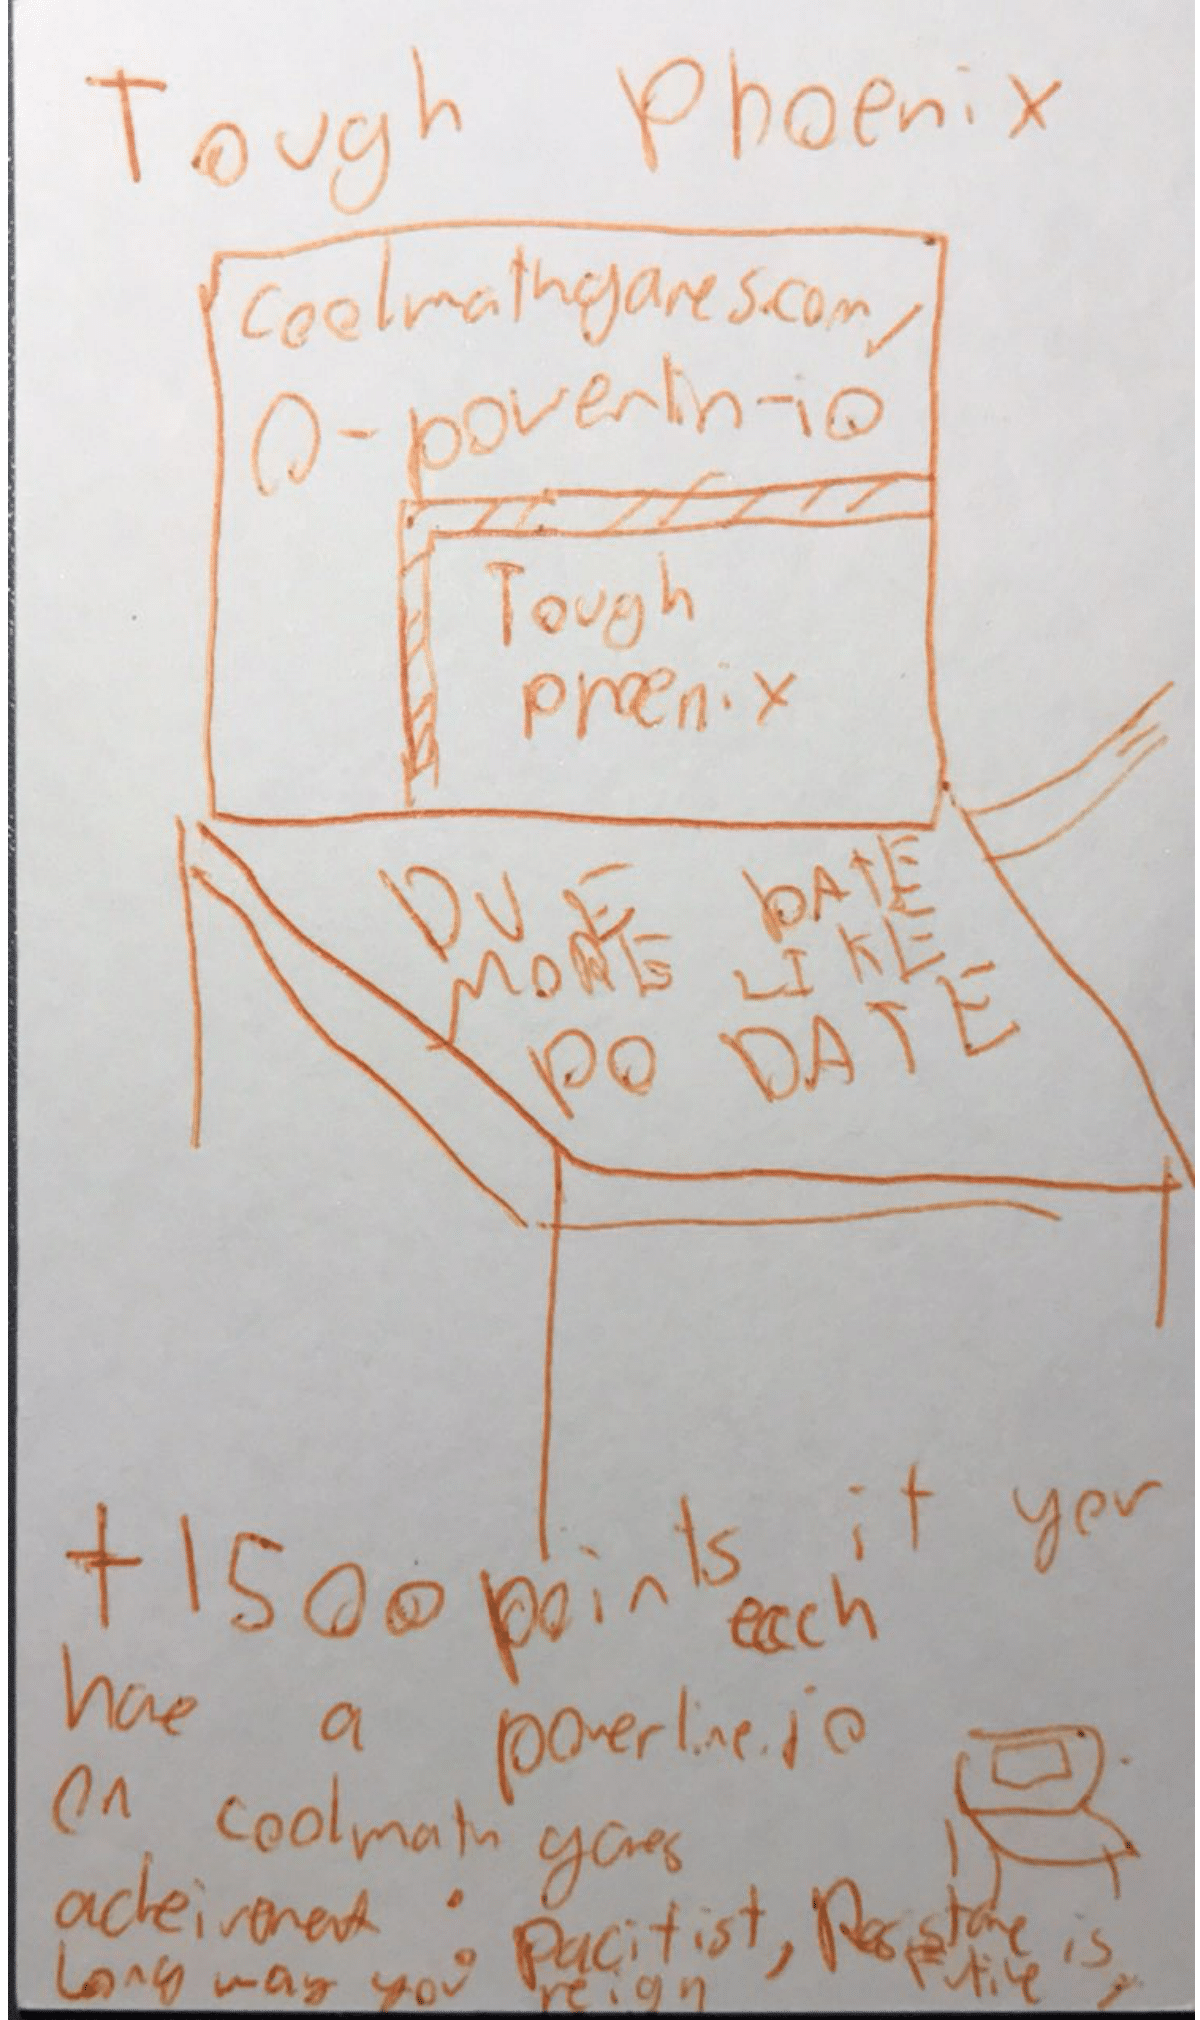 Tough Phoenix
coolmathgames.com/
0-poverlin-io
Tough
phoenix
DUE DATE
MORE LIKE
DO DATE
+1500 points if you
each
have a powerline.io
on coolmath games
acheivement : pacifist, Resistance is futile,
Long may you reign